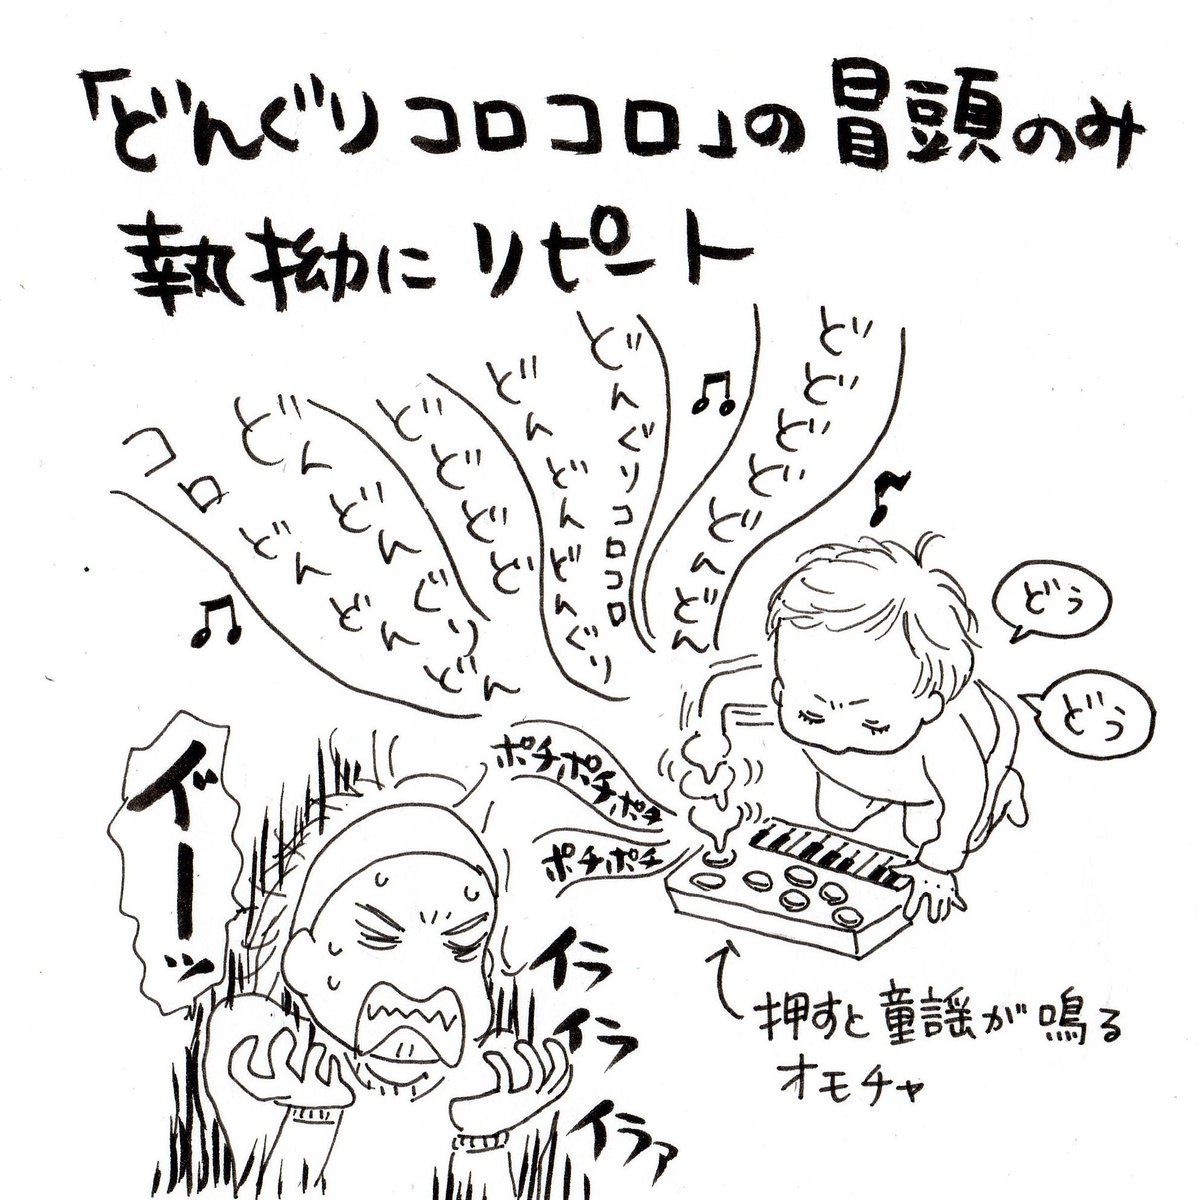 「どんぐりコロコロ」の冒頭のみ
執拗にリピート
どどどどどんどん
どんぐりコロコロ
どんどんどんぐり
どどどど
どんどんぐり
コロどんどんどん
どぅ
どぅ
ポチポチポチ
ポチポチ
イーッ
イラ
イラ
イラァ
押すと童謡が鳴る
オモチャ